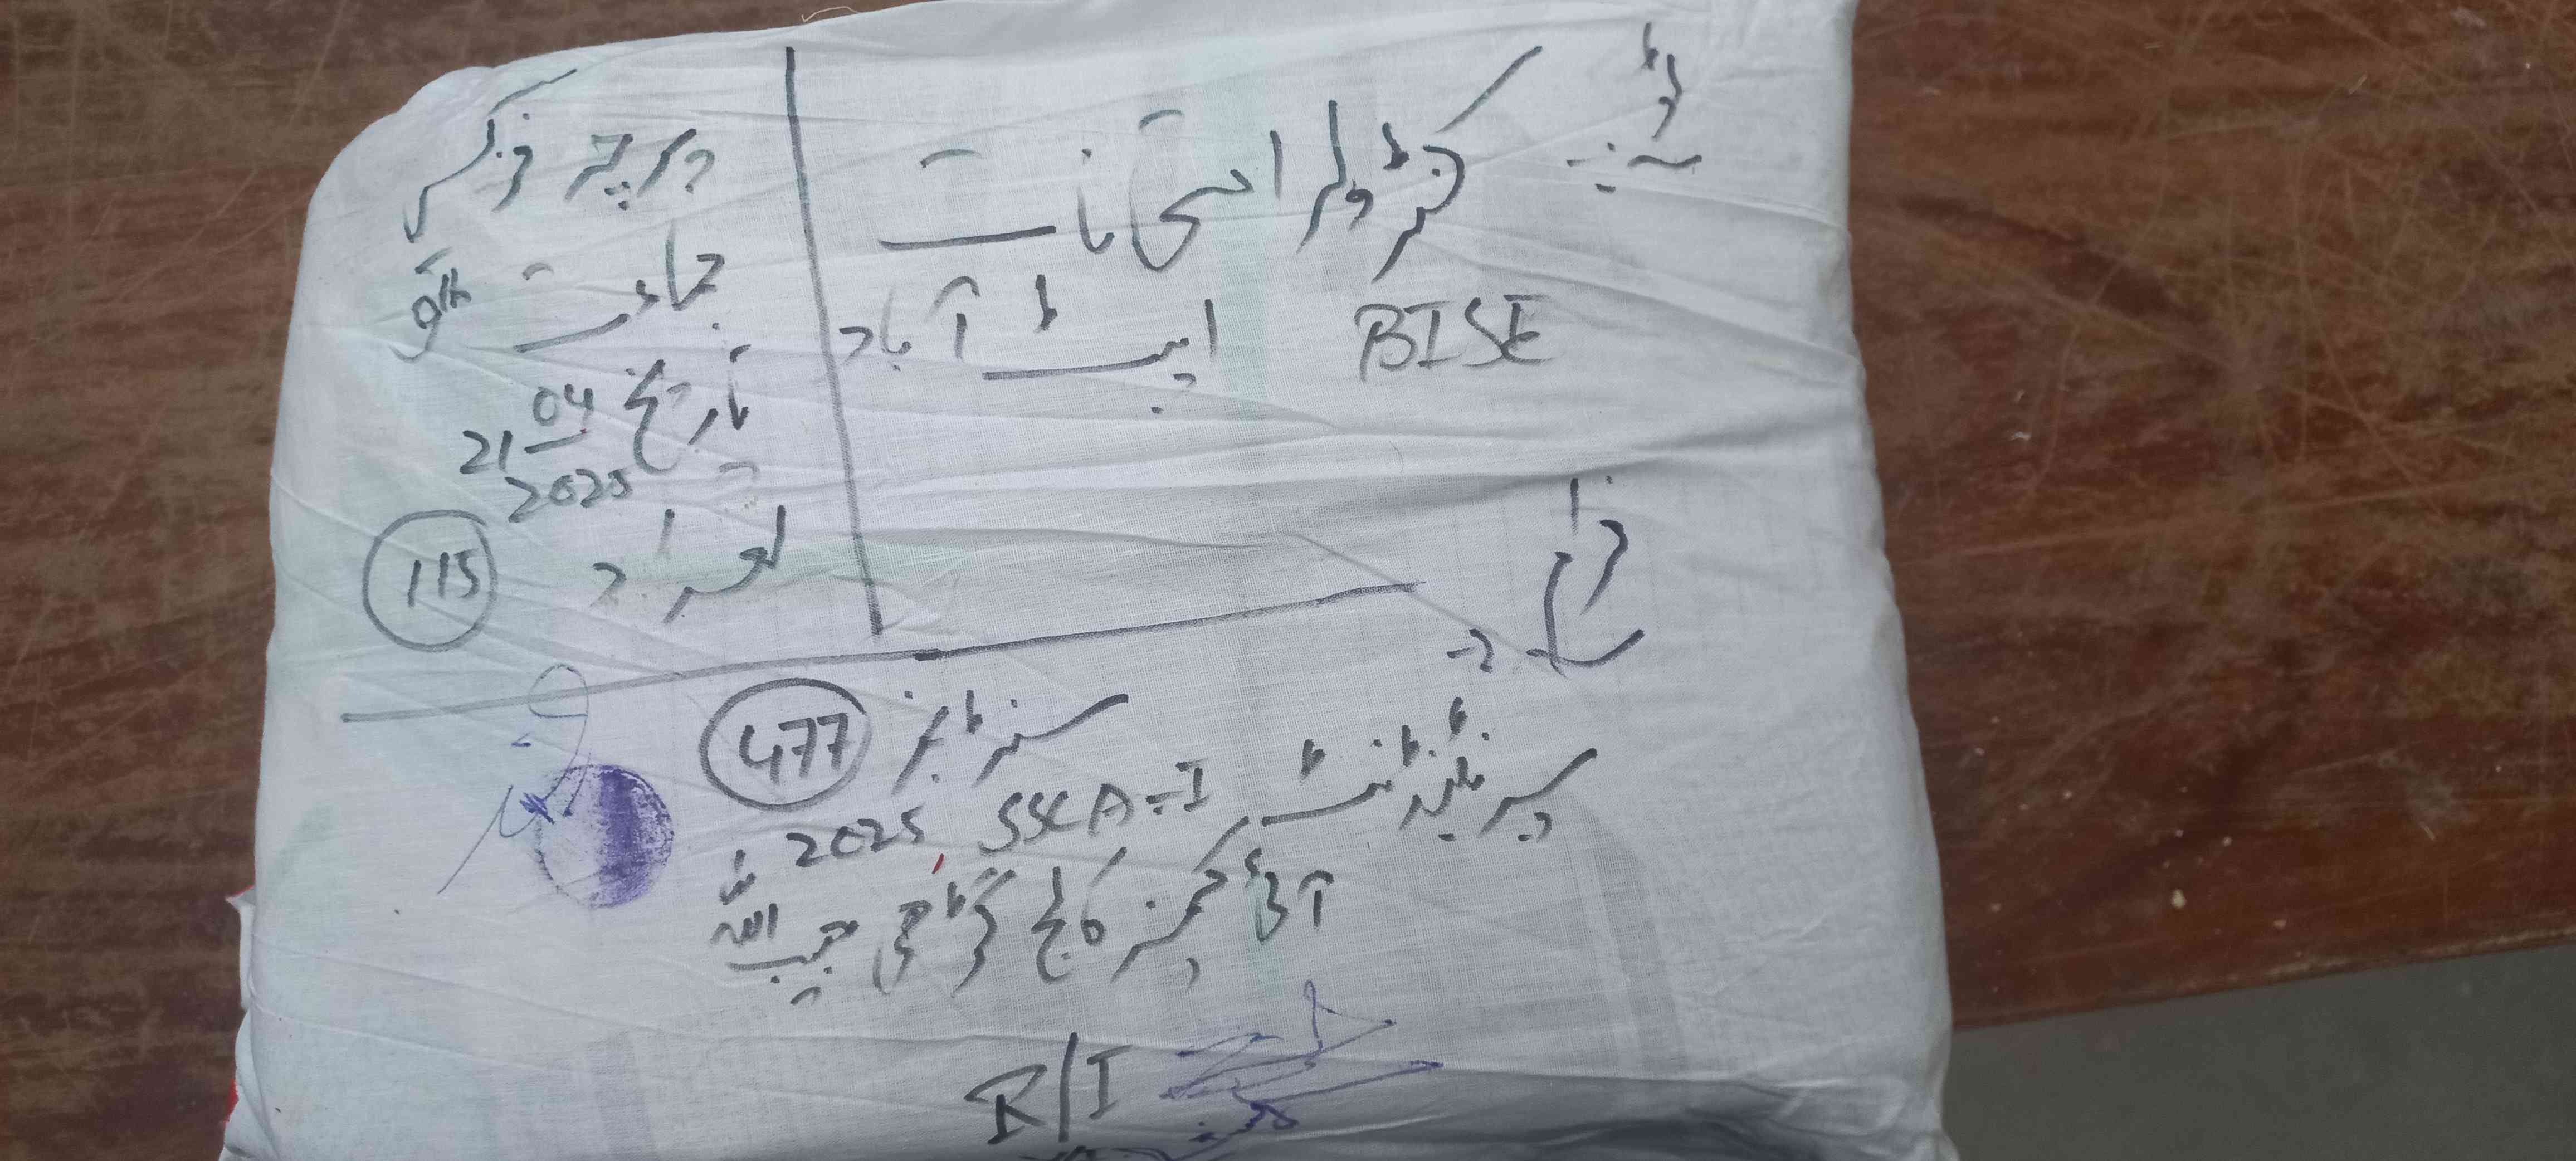 ٹو :-
کنٹرولر امتحانات
BISE ایبٹ آباد
پرچہ فزکس
جماعت 9th
تاریخ 21/04/2025
تعداد 115
فرام :-
سپرنٹنڈنٹ سنٹر نمبر 477
SSC A-I 2025
آئی کالج گڑھی حبیب اللہ
R/I